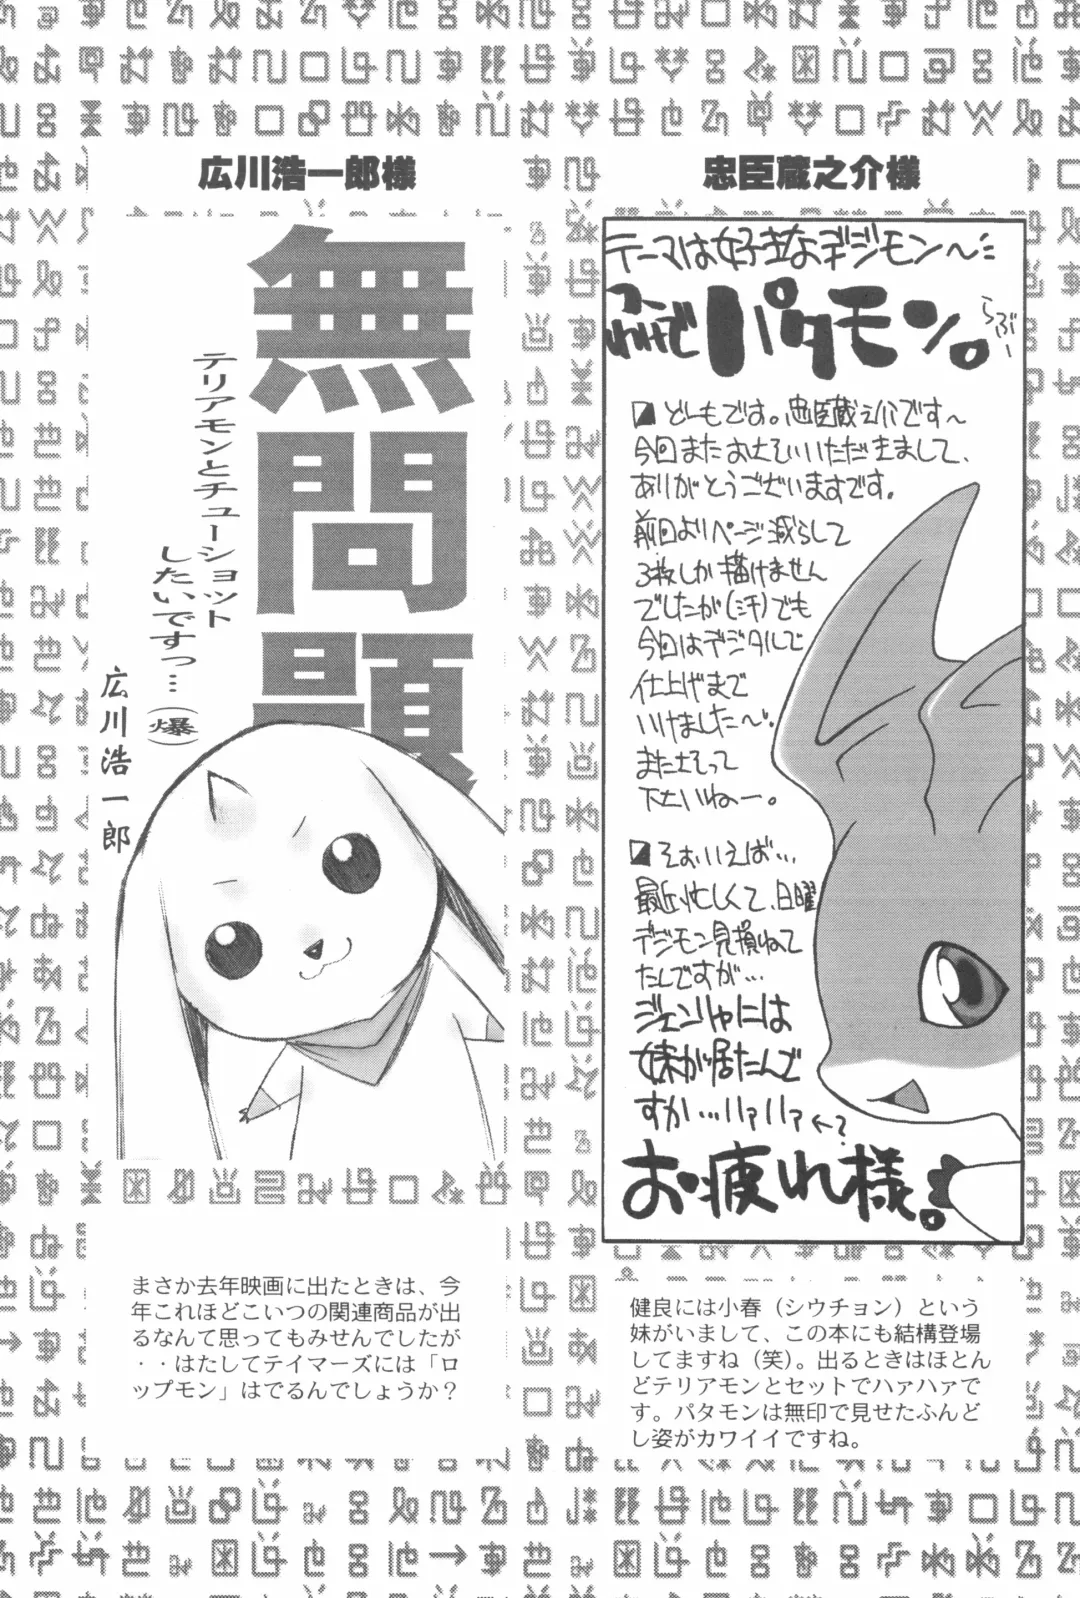 忠臣蔵之介様
テーマは好きなデジモン〜
パタモン。
らぶー
どーもです。忠臣蔵之介です〜
今回またおさそいいただきまして、
ありがとうございますです。
前回よりページ減らして
3枚しか描けません
でしたが(汗)でも
今回はデジタルで
仕上げまで
いけました〜。
またさそって
下さいねー。
そおいえば…
最近忙しくて、日曜
デジモン見損ねて
たしですが…
ジェンリャには
妹が居たんで
すか…ハァハァ←?
お疲れ様。
健良には小春（シウチョン）という
妹がいまして、この本にも結構登場
してますね（笑）。出るときはほとん
どテリアモンとセットでハァハァで
す。パタモンは無印で見せたふんど
し姿がカワイイですね。
広川浩一郎様
無問題
テリアモンとチューショット
したいですっ…（爆）
広川浩一郎
まさか去年映画に出たときは、今
年これほどこいつの関連商品が出
るなんて思ってもみせんでしたが
・・はたしてテイマーズには「ロ
ップモン」はでるんでしょうか？